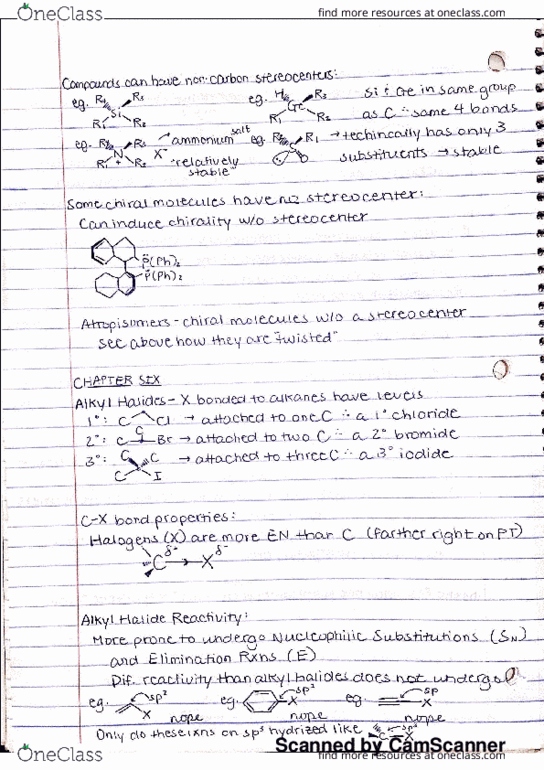 OneClass
find more resources at oneclass.com
Compounds can have non-carbon stereocenters:
eg. R4 R3 Si R1 R2 eg. H R3 Ge R1 R2 Si & Ge in same group
as C ∴ same 4 bonds
eg. R4 R3 N + R1 R2 X⁻ → ammonium salt "relatively stable" eg. R1 → techincally has only 3
substituents → stable
Some chiral molecules have no stereocenter:
Can induce chirality w/o stereocenter
P(Ph)2
P(Ph)2
Atropisomers - chiral molecules w/o a stereocenter
see above how they are "twisted"
CHAPTER SIX
Alkyl Halides - X bonded to alkanes have levels
1°: C Cl → attached to one C ∴ a 1° chloride
2°: C C Br → attached to two C ∴ a 2° bromide
3°: C C C I → attached to three C ∴ a 3° iodide
C-X bond properties:
Halogens (X) are more EN than C (farther right on PT)
C δ+ → X δ-
Alkyl Halide Reactivity:
More prone to undergo Nucleophilic Substitutions (SN)
and Elimination Rxns (E)
Dif. reactivity than alkyl halides does not undergo
eg. sp² X nope eg. sp² X nope eg. sp X nope
Only do these rxns on sp³ hydrized like C X
Scanned by CamScanner
OneClass
find more resources at oneclass.com